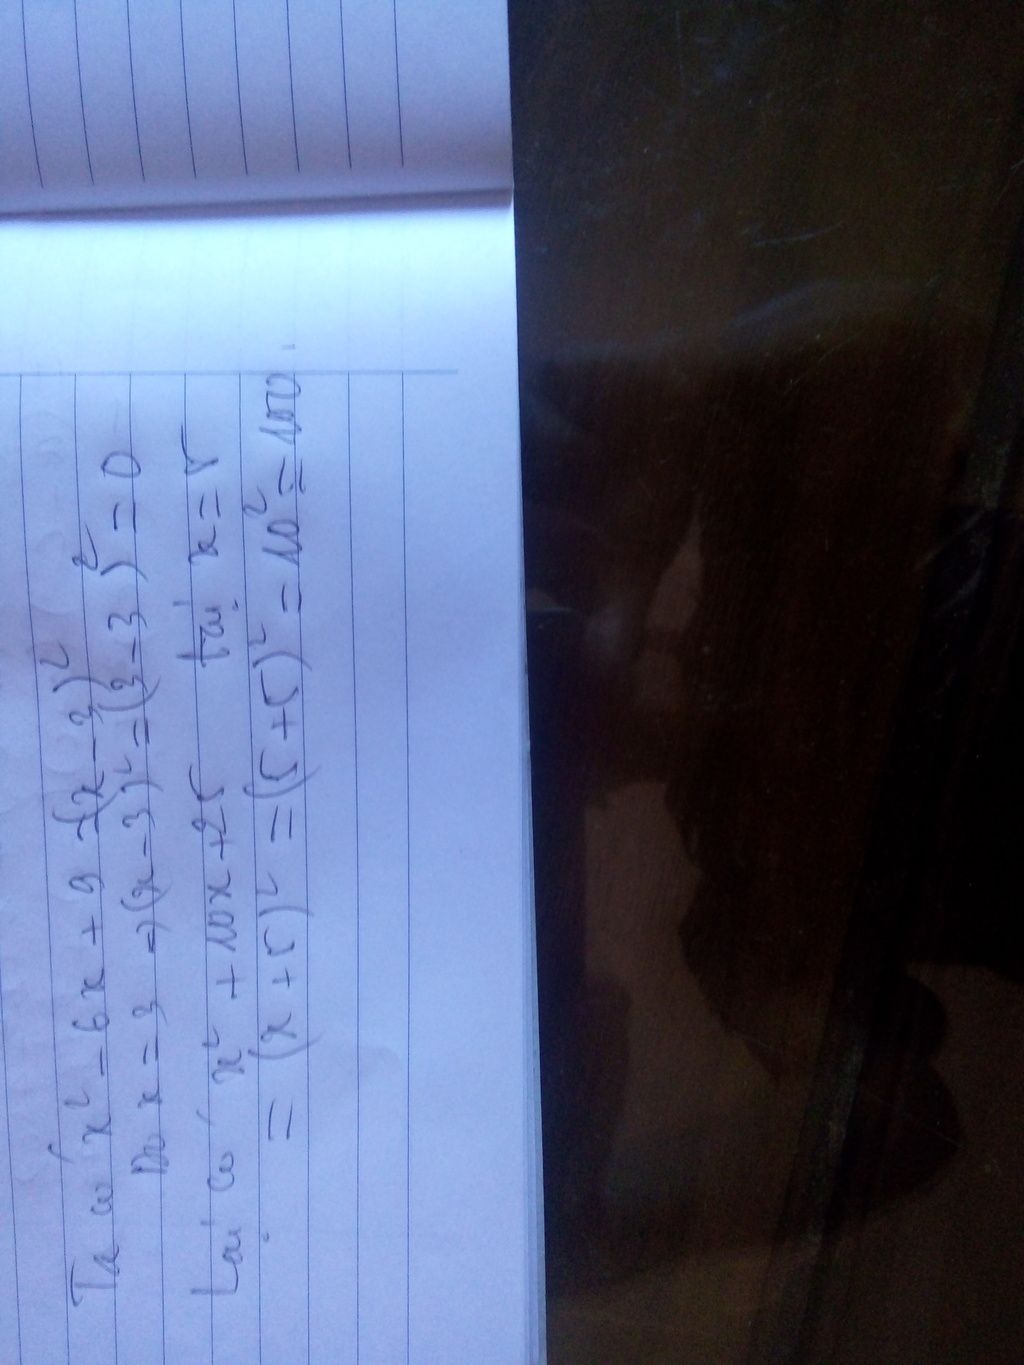 Ta có x² - 6x + 9 = (x - 3)²
Do x = 3 ⇒ (x - 3)² = (3 - 3)² = 0
Lại có x² + 10x + 25 tại x = 5
= (x + 5)² = (5 + 5)² = 10² = 100.